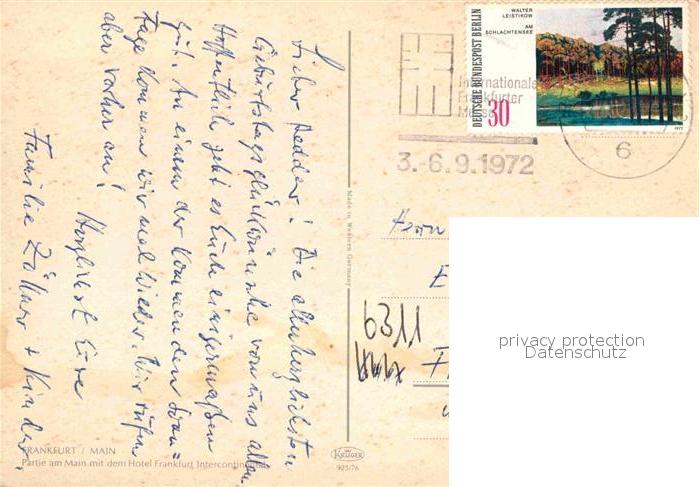 Lieber Pedder! Die allerherzlichsten
Geburtstagsglückwünsche von uns allen.
Hoffentlich geht es Euch einigermaßen
gut. An einem der kommenden Sonn=
tage kommen wir mal wieder. Wir rufen
aber vorher an!
Herzlichst Eure
Familie Zöllner + Kinder.
FRANKFURT / MAIN
Partie am Main mit dem Hotel Frankfurt Intercontinental
Made in Western Germany
KRÜGER
925/76
Internationale
Frankfurter
3.-6.9.1972
6
DEUTSCHE BUNDESPOST BERLIN
30
WALTER
LEISTIKOW
AM
SCHLACHTENSEE
1972
Herrn
E
6311
F
privacy protection
Datenschutz